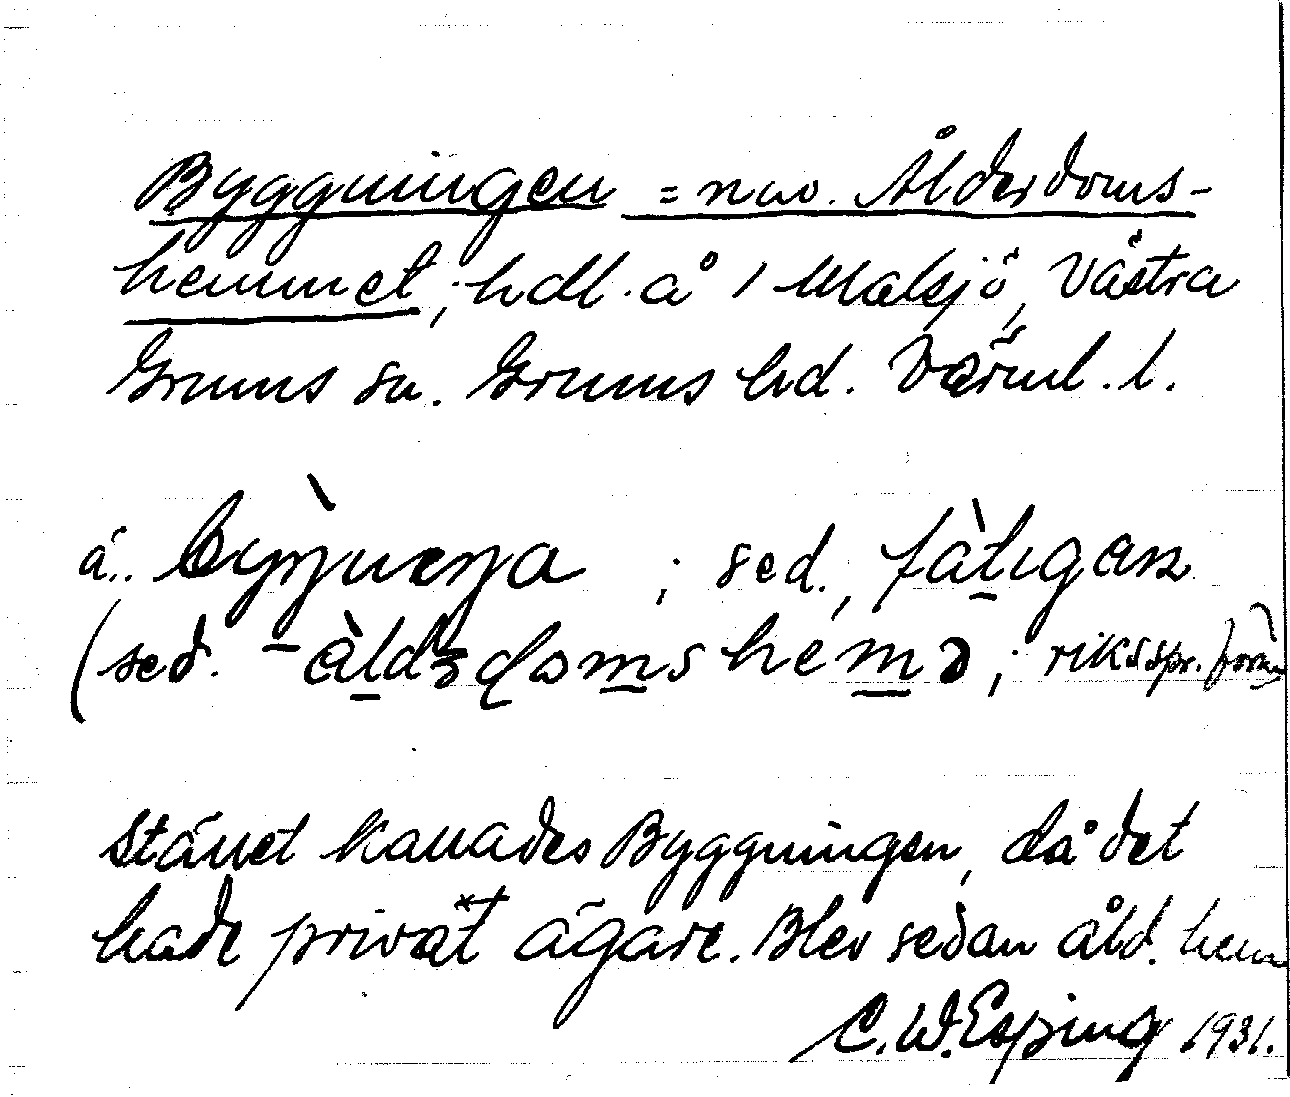 Byggningen = nuv. Ålderdoms-
hemmet, hdl. å 1 Malsjö, Västra
Grums sn. Grums hd. Värml. l.
ä.. ; sed., fàtıgan
(sed. - àldɜdomshemə ; riksspr. form)
Stället kallades Byggningen, då det
hade privat ägare. Blev sedan åld. hem
C. W. Esping 1931.